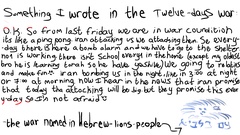 Something I wrote in the Twelve-days war
O.K. So from last friday we are in war counition
its like a ping pong iran attacking us we attacking then So every
day there is here a bomb alarm and we have to go to the shelter
non is working there isn't School avreyi in the home (except my oldest
bro he is learning torah so he hate yeshive) We going to relatives
and make fun. iran bombing us in the night, like in 3:00 at night
or 7:00 at morning now i hear in the news that iran promise
that today the attacking will be big but they promise this ever
y day so im not afraid
the war named in Hebrew-lions-people